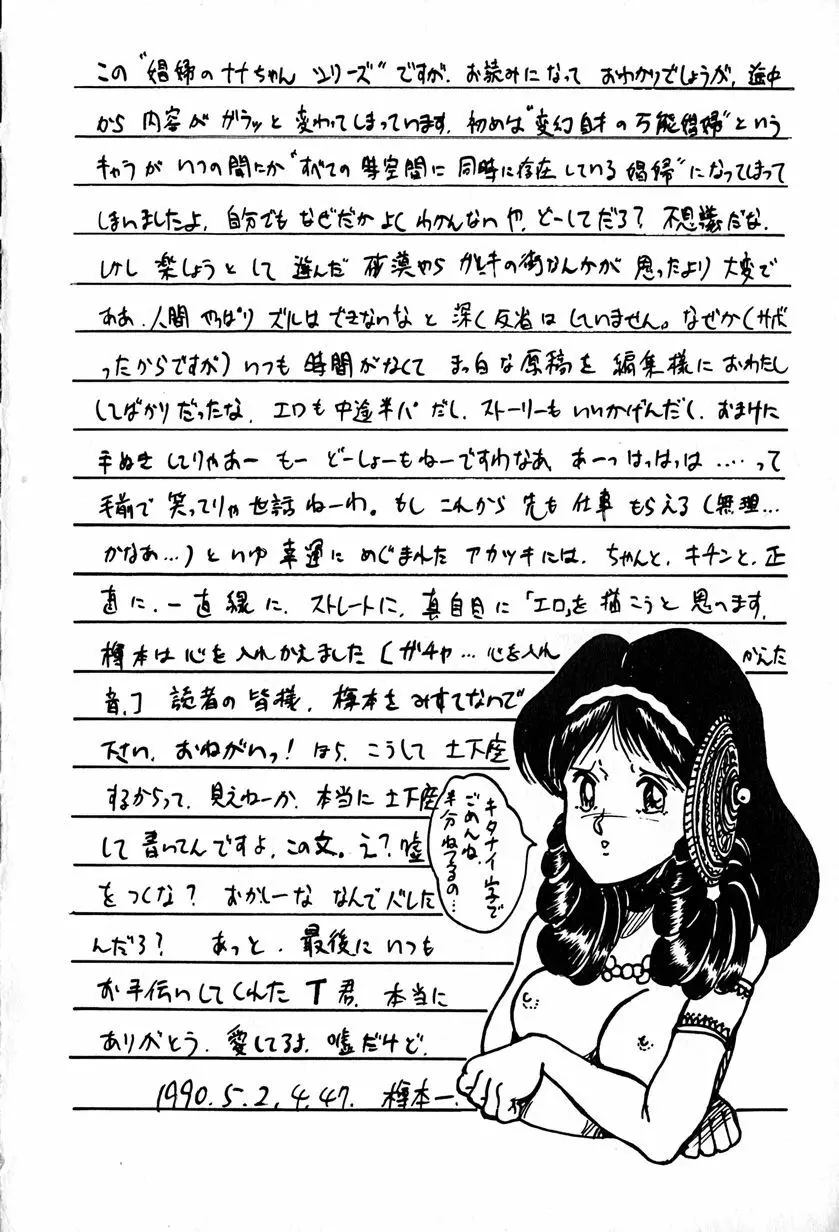 この“娼婦のナナちゃんシリーズ”ですが、お読みになって おわかりでしょうが、途中
から 内容が ガラッと 変わってしまっています。初めは“変幻自才の万能娼婦”という
キャラが いつの間にか“すべての時空間に 同時に存在している 娼婦”になってしまって
しまいましたよ、自分でも なぜだか よく わかんないや、どーしてだろ? 不思議だな。
しかし 楽しようとして 選んだ 砂漠やら ガレキの街なんかが 思ったより 大変で
ああ、人間 やっぱり ズルは できないな と 深く 反省は していません。なぜか(サボ
ったからですが)いつも 時間がなくて まっ白な 原稿を 編集様に おわたし
してばかりだったな、エロも 中途半パ だし、ストーリーも いいかげんだし、おまけに
手ぬき してりゃあー もー どーしょーもねーですわなあ、あーっ はっはっは ‥‥って
手前で 笑ってりゃ 世話 ねーわ。もし これから 先も 仕事 もらえる(無理…
かなあ…)といゆ 幸運に めぐまれた アカツキには、ちゃんと、キチンと、正
直に、一直線に、ストレートに、真面目に「エロ」を 描こうと 思います。
樽本は 心を 入れかえました〔ガチャ…心を入れ かえた
音、〕 読者の 皆様、樽本を みすてないで
下さい、おねがいっ! ほら、こうして 土下座
するからって、見えねーか、本当に 土下座
して 書いてんですよ、この文。え? 嘘
をつくな? おかしーな なんで バレした
んだろ? あっと、最後に いつも
お手伝いしてくれた T君、本当に
ありがとう、愛してるよ、嘘だけど。
1990.5.2,4.47. 樽本一.
キタナイ字で
ごめんね、
半分ねてるの…